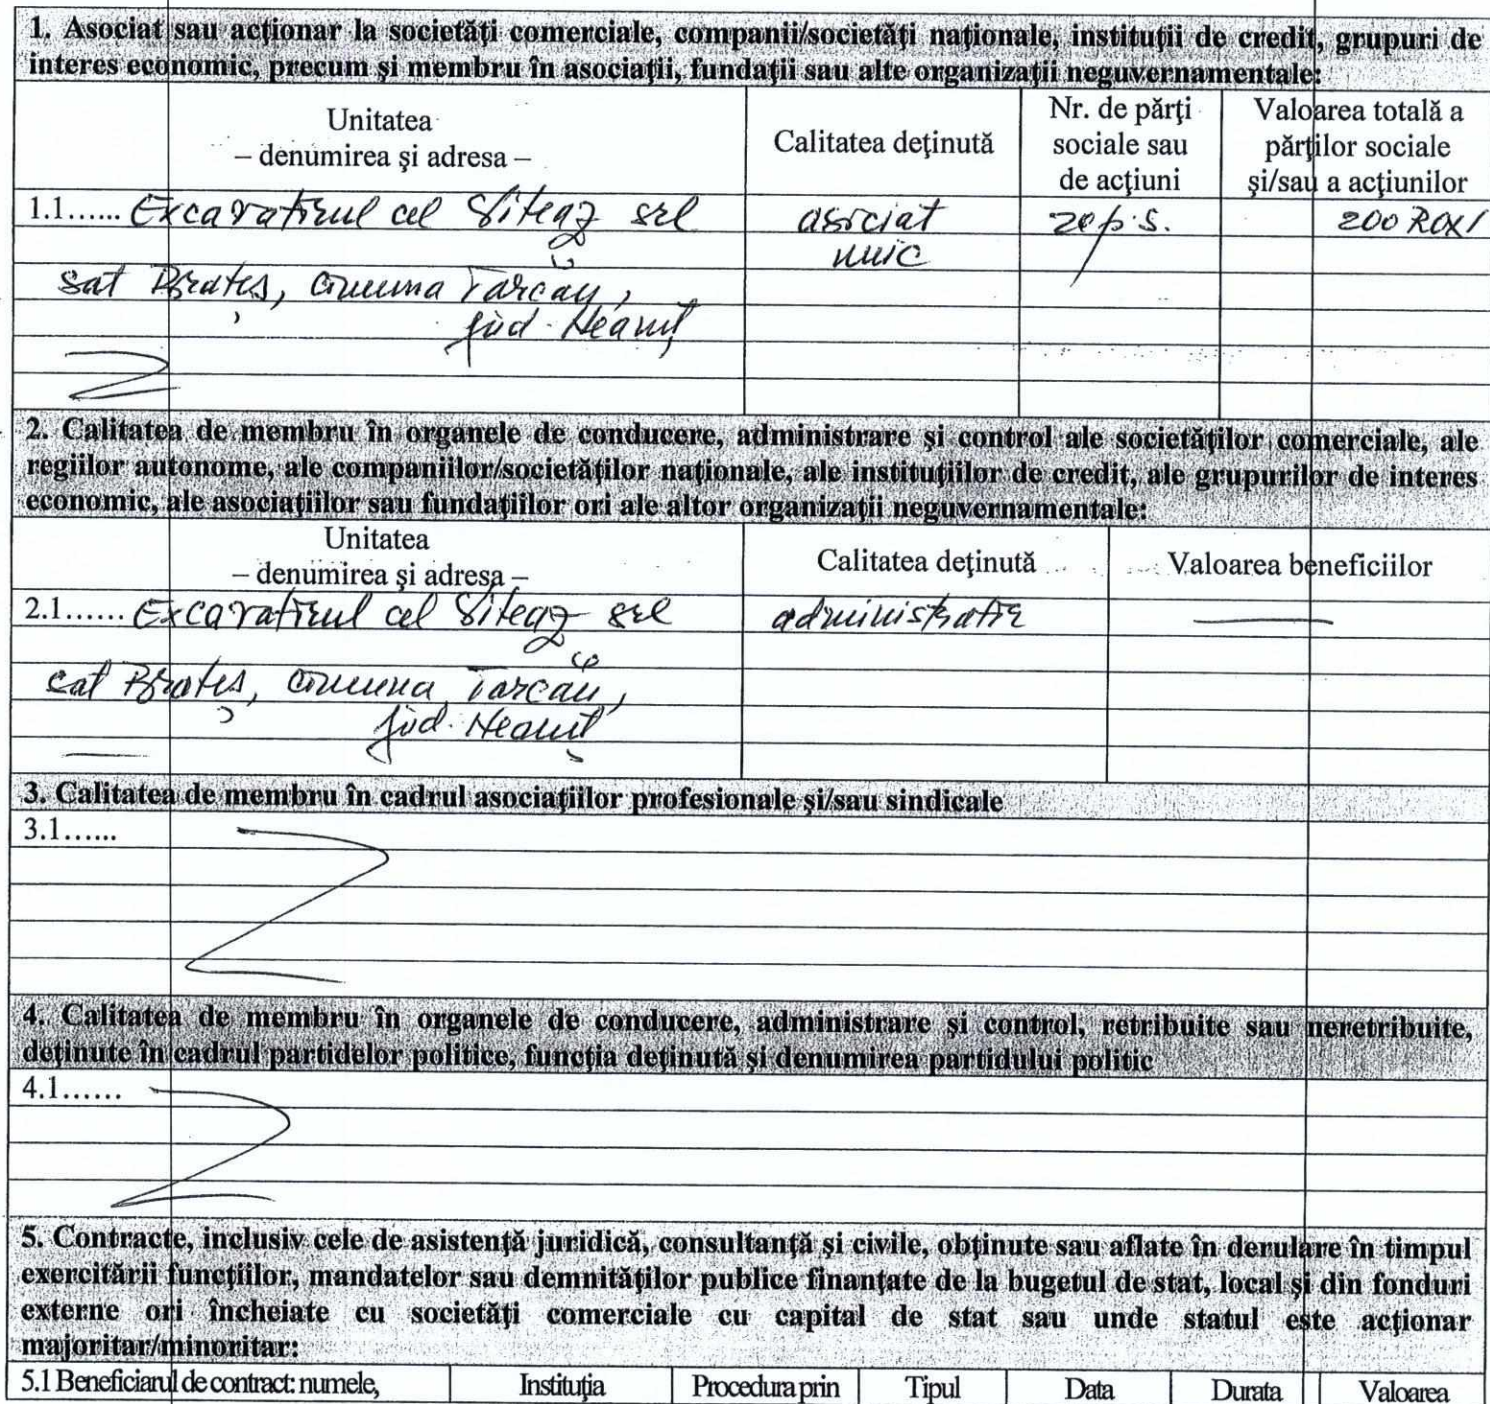 1. Asociat sau acţionar la societăţi comerciale, companii/societăţi naţionale, instituţii de credit, grupuri de
interes economic, precum şi membru în asociaţii, fundaţii sau alte organizaţii neguvernamentale:
Unitatea
– denumirea şi adresa –
Calitatea deţinută
Nr. de părţi
sociale sau
de acţiuni
Valoarea totală a
părţilor sociale
şi/sau a acţiunilor
1.1...... Excavatorul cel srl
asociat
unic
20 p.s.
200 RON
sat Brateş, comuna Tarcău,
jud. Neamţ
2. Calitatea de membru în organele de conducere, administrare şi control ale societăţilor comerciale, ale
regiilor autonome, ale companiilor/societăţilor naţionale, ale instituţiilor de credit, ale grupurilor de interes
economic, ale asociaţiilor sau fundaţiilor ori ale altor organizaţii neguvernamentale:
Unitatea
– denumirea şi adresa –
Calitatea deţinută
Valoarea beneficiilor
2.1...... Excavatorul cel srl
administrator
sat Brateş, comuna Tarcău,
jud. Neamţ
3. Calitatea de membru în cadrul asociaţiilor profesionale şi/sau sindicale
3.1......
4. Calitatea de membru în organele de conducere, administrare şi control, retribuite sau neretribuite,
deţinute în cadrul partidelor politice, funcţia deţinută şi denumirea partidului politic
4.1......
5. Contracte, inclusiv cele de asistenţă juridică, consultanţă şi civile, obţinute sau aflate în derulare în timpul
exercitării funcţiilor, mandatelor sau demnităţilor publice finanţate de la bugetul de stat, local şi din fonduri
externe ori încheiate cu societăţi comerciale cu capital de stat sau unde statul este acţionar
majoritar/minoritar:
5.1 Beneficiarul de contract: numele,
Instituţia
Procedura prin
Tipul
Data
Durata
Valoarea